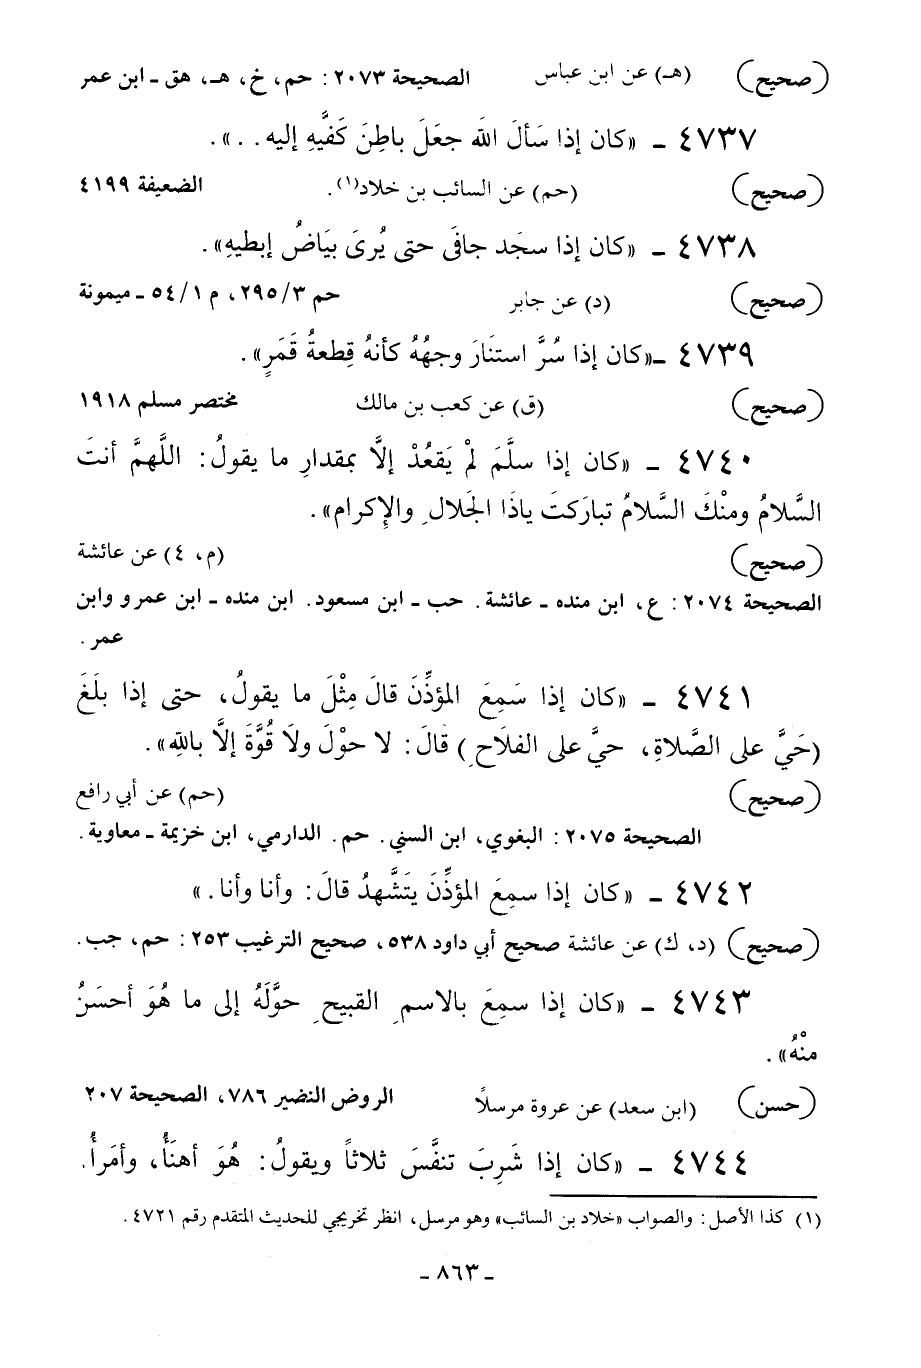 (صحيح) (هـ) عن ابن عباس الصحيحة ٢٠٧٣ : حم، خ، هـ، هق ـ ابن عمر
٤٧٣٧ ـ «كان إذا سَألَ اللّٰه جعَلَ باطِنَ كَفَّيهِ إليه . . .» .
(صحيح) (حم) عن السائب بن خلاد(١). الضعيفة ٤١٩٩
٤٧٣٨ ـ «كان إذا سجَد جافَى حتى يُرىَ بيَاضُ إبطيهِ» .
(صحيح) (د) عن جابر حم ٢٩٥/٣، م ٥٤/١ ـ ميمونة
٤٧٣٩ ـ«كان إذا سُرَّ استنَارَ وجهُهُ كأنهُ قِطعةُ قَمَرٍ» .
(صحيح) (ق) عن كعب بن مالك مختصر مسلم ١٩١٨
٤٧٤٠ ـ «كان إذا سلَّمَ لمْ يَقعُدْ إلاَّ بمقدارِ ما يقولُ: اللَّهمَّ أنتَ
السَّلامُ ومنْكَ السَّلامُ تبارَكتَ ياذَا الجَلالِ والإِكرام» .
(صحيح) (م، ٤) عن عائشة
الصحيحة ٢٠٧٤ : ع، ابن منده ـ عائشة . حب ـ ابن مسعود. ابن منده ـ ابن عمرو وابن
عمر .
٤٧٤١ ـ «كان إذا سَمِعَ المؤذِّنَ قالَ مِثْلَ ما يقولُ، حتى إذا بلَغَ
(حَيَّ على الصَّلاةِ، حيَّ على الفلَاحِ) قالَ: لا حوْلَ ولَا قُوَّةَ إلاَّ باللهِ» .
(صحيح) (حم) عن أبي رافع
الصحيحة ٢٠٧٥ : البغوي، ابن السني. حم. الدارمي، ابن خزيمة ـ معاوية.
٤٧٤٢ ـ «كان إذا سمِعَ المؤذِّنَ يتَشَّهدُ قالَ: وأنا وأنا. »
(صحيح) (د، ك) عن عائشة صحيح أبي داود ٥٣٨، صحيح الترغيب ٢٥٣ : حم، حب.
٤٧٤٣ ـ «كان إذا سمِعَ بالاسمِ القبيحِ حوَّلَهُ إلى ما هُوَ أحسَنُ
منْهُ» .
(حسن) (ابن سعد) عن عروة مرسلًا الروض النضير ٧٨٦، الصحيحة ٢٠٧
٤٧٤٤ ـ «كان إذا شَرِبَ تنفَّسَ ثلاثاً ويقولُ: هُوَ أهنَأُ، وأمَرأُ.
(١) كذا الأصل: والصواب «خلاد بن السائب» وهو مرسل، انظر تخريجي للحديث المتقدم رقم ٤٧٢١ .
ـ ٨٦٣ ـ